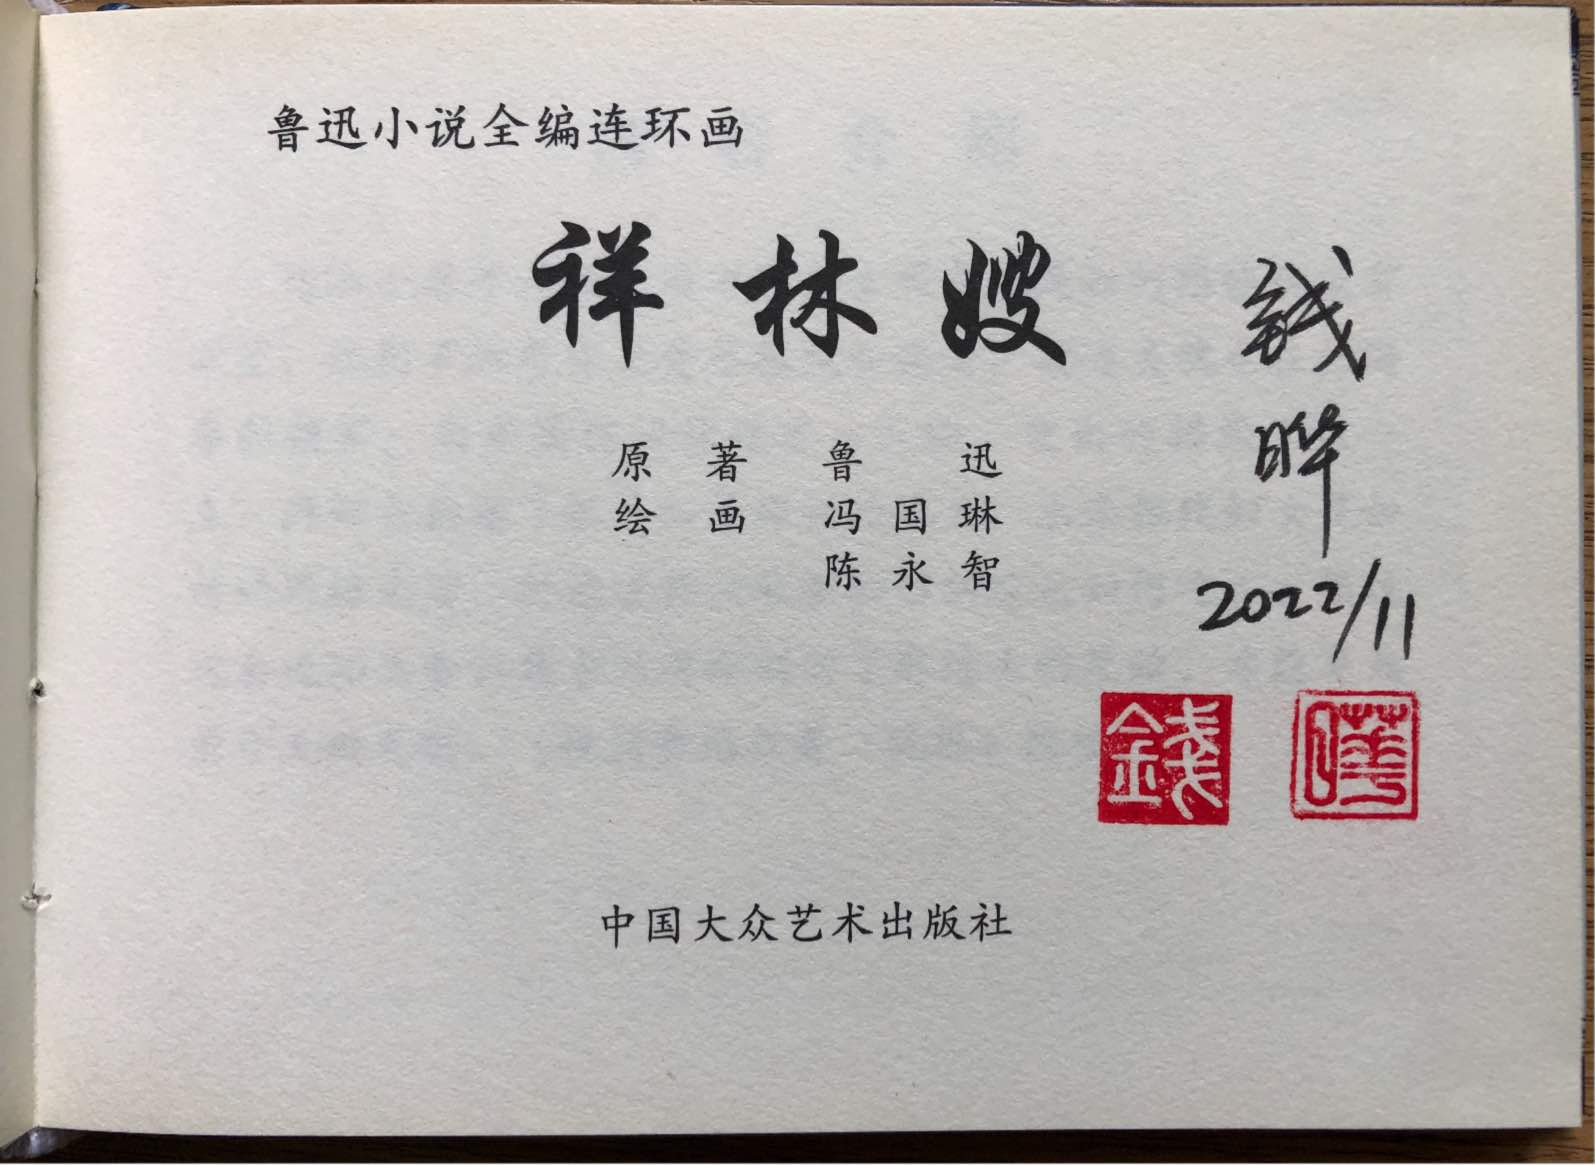 鲁迅小说全编连环画
祥林嫂
原著 鲁迅
绘画 冯国琳
陈永智
钱
晔
2022/11
錢
曄
中国大众艺术出版社